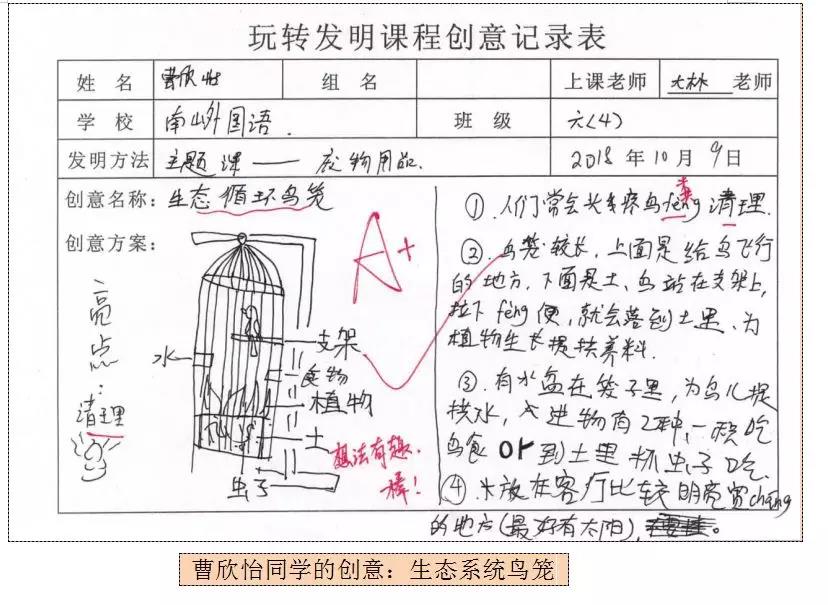 玩转发明课程创意记录表
姓 名 曹欣怡 组 名 上课老师 大林 老师
学 校 南山外国语. 班 级 六(4)
发明方法 主题课——宠物用品. 2018 年 10 月 9 日
创意名称：生态循环鸟笼
创意方案：
亮点：清理
A+
水
支架
食物
植物
土
虫子
想法有趣.
棒！
①.人们常会头疼鸟feng清理.
粪
②.鸟笼较长,上面是给鸟飞行
的地方,下面是土、鸟站在支架上,
拉下fèng便,就会落到土里、为
植物生长提供养料.
③.有水盆在笼子里,为鸟儿提
供水,食物有2种,一种吃
鸟食or到土里抓虫子吃.
④.放在客厅比较明亮宽chǎng
的地方(最好有太阳)。
曹欣怡同学的创意：生态系统鸟笼